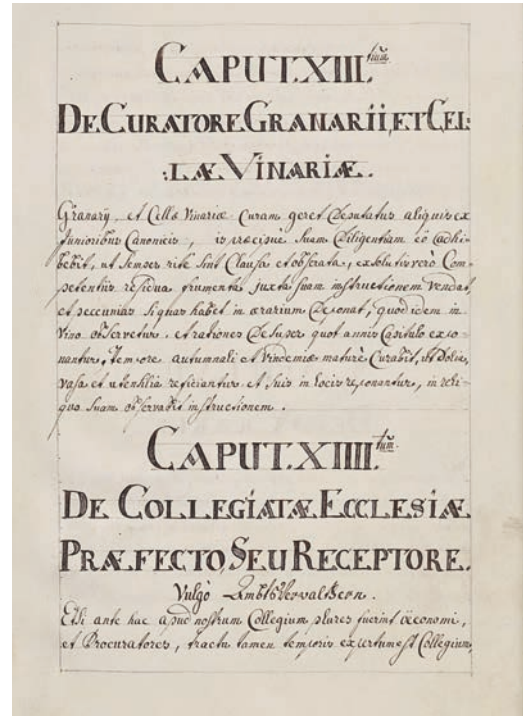 CAPUT.XIII.tum
DE CURATORE GRANARII, ET CEL:
:LÆ VINARIÆ.
Granarÿ et Cellæ Vinariæ Curam geret Deputatus aliquis ex
Junioribus Canonicis, is præcipue suam diligentiam eò adhi-
bebit, ut semper rite sint Clausa et obserata, exsolutis verò Com-
petentiis residua frumenta juxta suam instructionem vendat,
et peccunias si quas habet in ærarium deponat, quod idem in
Vino observetur, et rationes desuper quot annis Capitulo expo-
nantur, Tempore autumnali et Vindemiæ maturè Curabit, ut Dolia,
vasa et utensilia reficiantur et suis in locis reponantur, in reli-
quo suam observabit instructionem.
CAPUT.XIIII.tum
DE COLLEGIATÆ ECCLESIÆ
PRÆFECTO, SEU RECEPTORE.
Vulgò AmbtsVerwaltern.
Etsi ante hac apud nostrum Collegium plures fuerint œconomi,
et Procuratores, tractu tamen temporis expertum est Collegium,